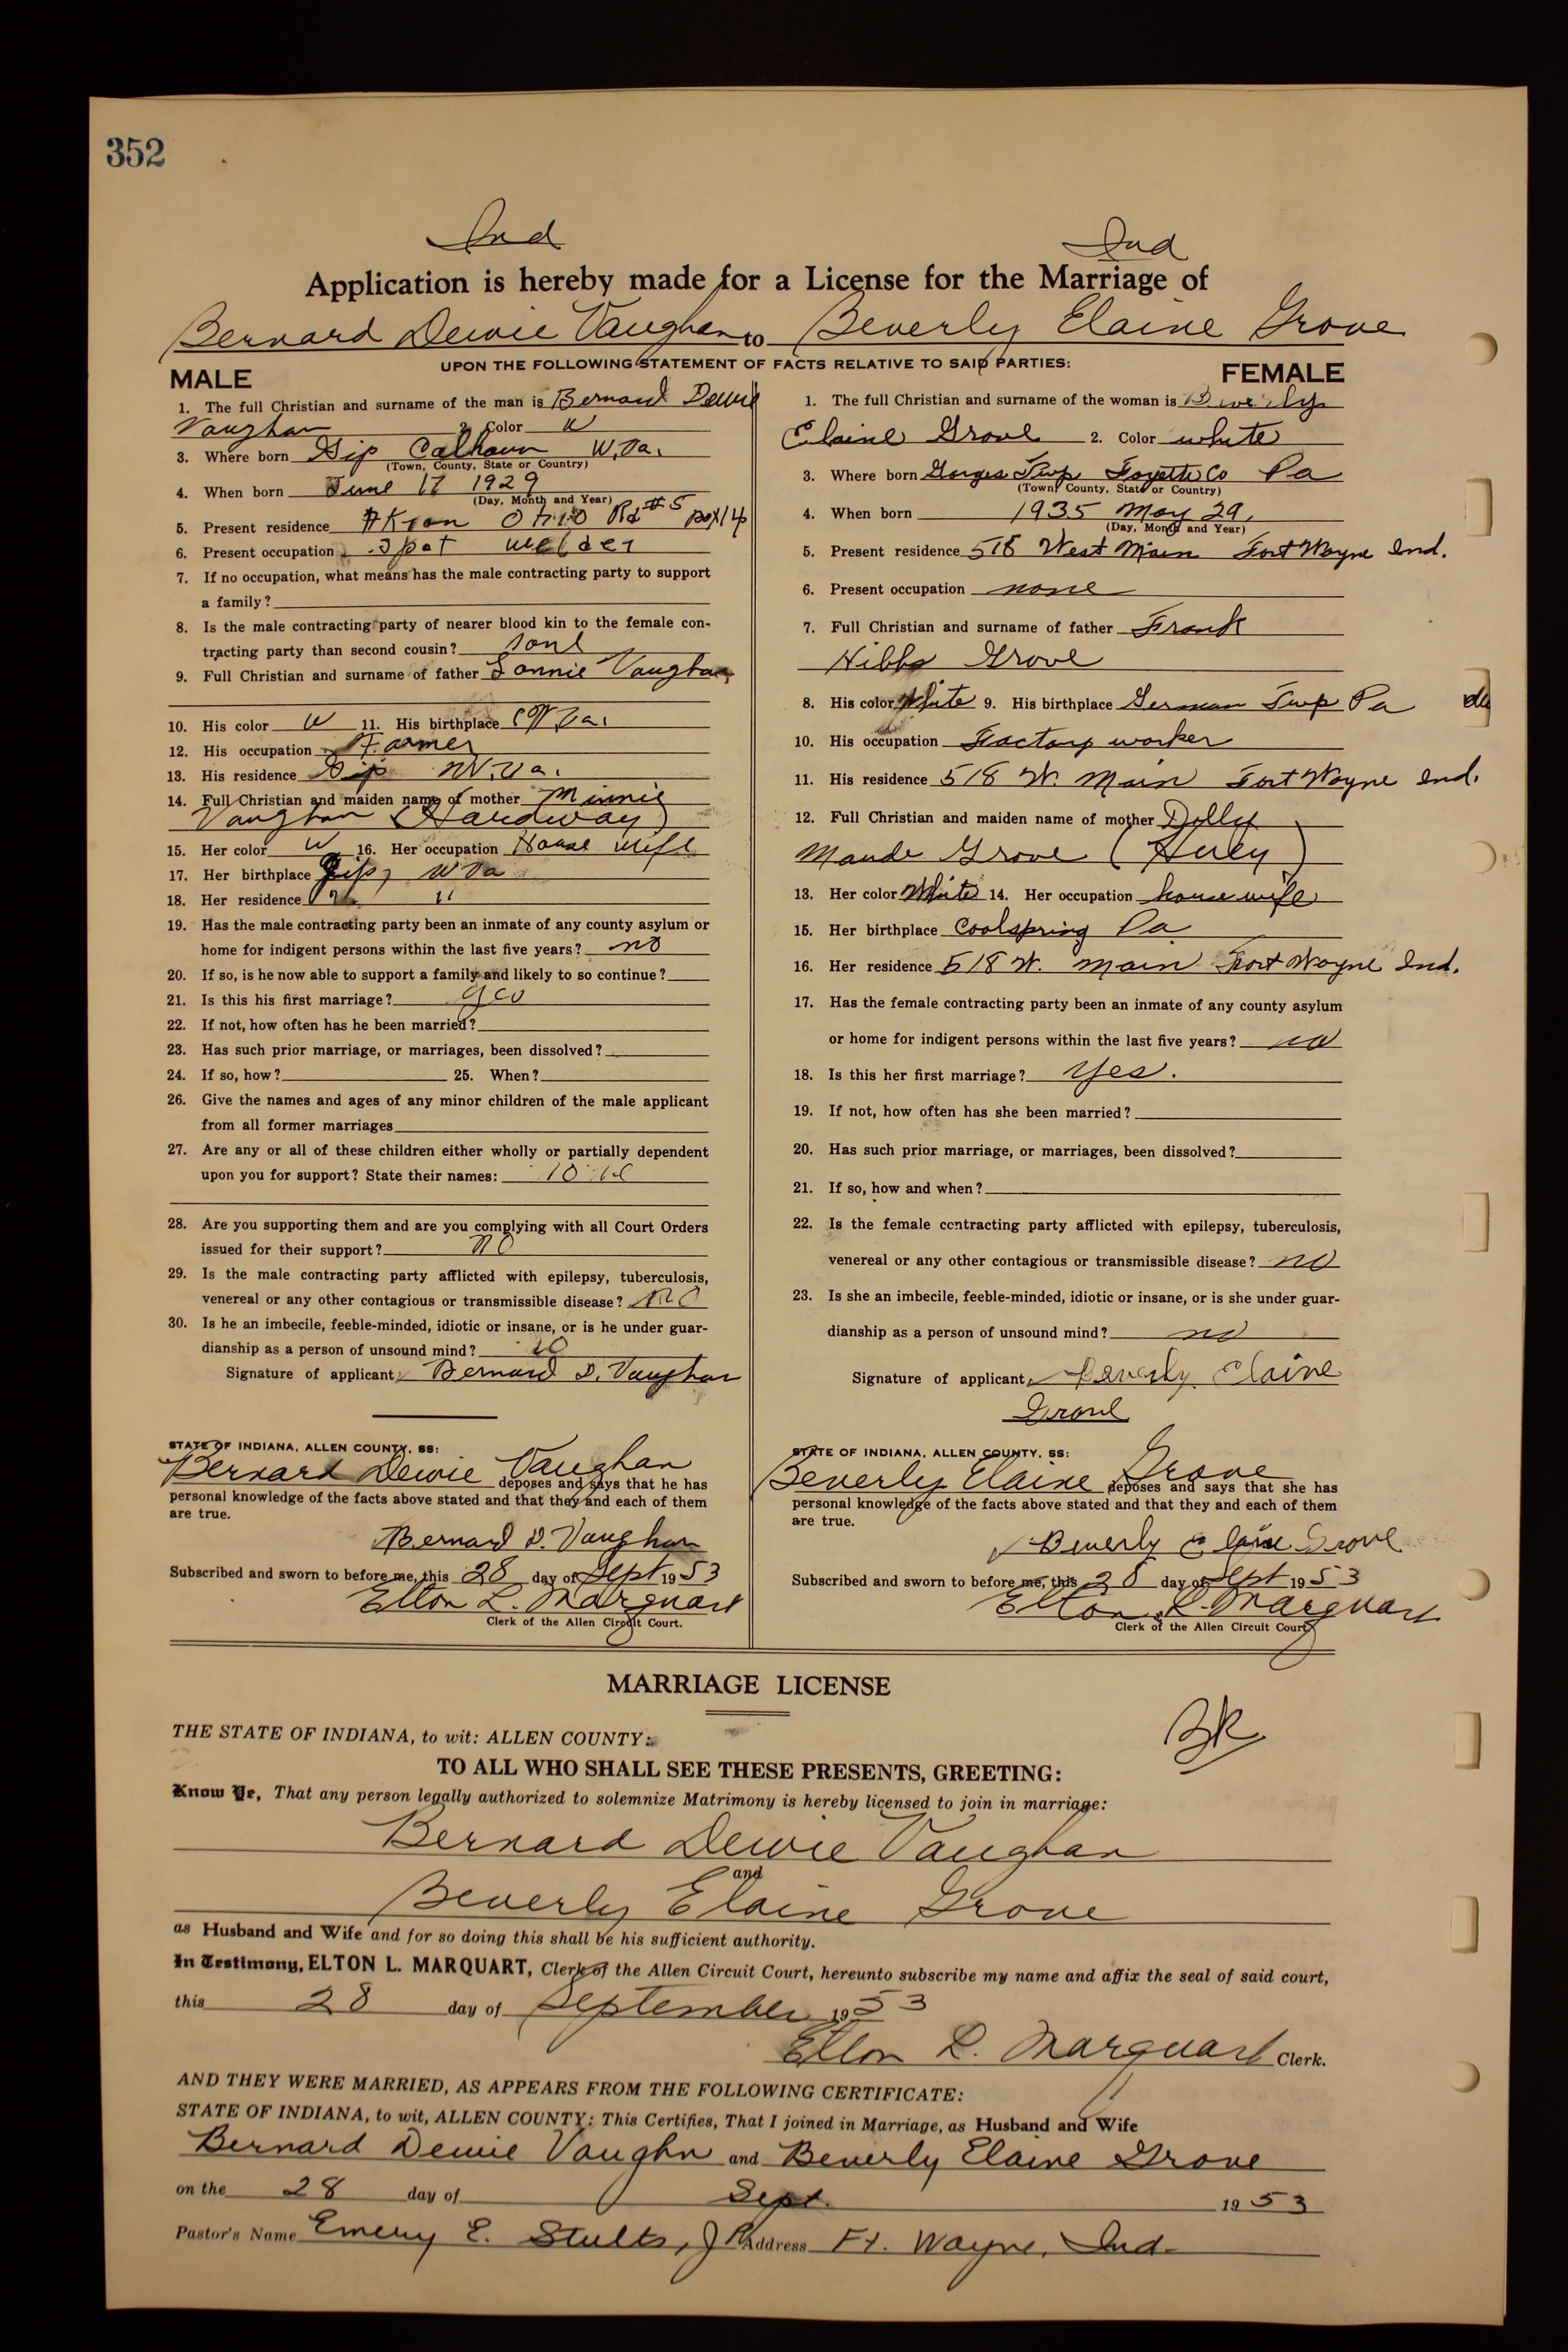 352
Ind Ind
Application is hereby made for a License for the Marriage of
Bernard Dewie Vaughan to Beverly Elaine Grove
UPON THE FOLLOWING STATEMENT OF FACTS RELATIVE TO SAID PARTIES:
MALE
1. The full Christian and surname of the man is Bernard Dewie
Vaughan 2. Color W
3. Where born Gip Calhoun W.Va.
(Town, County, State or Country)
4. When born June 17 1929
(Day, Month and Year)
5. Present residence Akron Ohio Rd #5 Box 14
6. Present occupation Spot welder
7. If no occupation, what means has the male contracting party to support
a family?
8. Is the male contracting party of nearer blood kin to the female con-
tracting party than second cousin? none
9. Full Christian and surname of father Lonnie Vaughan
10. His color W 11. His birthplace W.Va.
12. His occupation Farmer
13. His residence Gip W.Va.
14. Full Christian and maiden name of mother Minnie
Vaughan (Hardway)
15. Her color W 16. Her occupation House wife
17. Her birthplace Gip, W Va
18. Her residence " "
19. Has the male contracting party been an inmate of any county asylum or
home for indigent persons within the last five years? no
20. If so, is he now able to support a family and likely to so continue?
21. Is this his first marriage? yes
22. If not, how often has he been married?
23. Has such prior marriage, or marriages, been dissolved?
24. If so, how? 25. When?
26. Give the names and ages of any minor children of the male applicant
from all former marriages
27. Are any or all of these children either wholly or partially dependent
upon you for support? State their names: none
28. Are you supporting them and are you complying with all Court Orders
issued for their support? no
29. Is the male contracting party afflicted with epilepsy, tuberculosis,
venereal or any other contagious or transmissible disease? no
30. Is he an imbecile, feeble-minded, idiotic or insane, or is he under guar-
dianship as a person of unsound mind? no
Signature of applicant Bernard D. Vaughan
STATE OF INDIANA, ALLEN COUNTY, SS:
Bernard Dewie Vaughan deposes and says that he has
personal knowledge of the facts above stated and that they and each of them
are true.
Bernard D. Vaughan
Subscribed and sworn to before me, this 28 day of Sept 1953
Elton L. Marquart
Clerk of the Allen Circuit Court.
FEMALE
1. The full Christian and surname of the woman is Beverly
Elaine Grove 2. Color white
3. Where born Gorges Twp Fayette Co Pa
(Town, County, State or Country)
4. When born 1935 May 29,
(Day, Month and Year)
5. Present residence 518 West Main Fort Wayne Ind.
6. Present occupation none
7. Full Christian and surname of father Frank
Hibbs Grove
8. His color White 9. His birthplace German Twp Pa
10. His occupation Factory worker
11. His residence 518 W. Main Fort Wayne Ind.
12. Full Christian and maiden name of mother Dolly
Maude Grove (Huey)
13. Her color White 14. Her occupation housewife
15. Her birthplace Coolspring Pa
16. Her residence 518 W. Main Fort Wayne Ind.
17. Has the female contracting party been an inmate of any county asylum
or home for indigent persons within the last five years? no
18. Is this her first marriage? Yes.
19. If not, how often has she been married?
20. Has such prior marriage, or marriages, been dissolved?
21. If so, how and when?
22. Is the female contracting party afflicted with epilepsy, tuberculosis,
venereal or any other contagious or transmissible disease? no
23. Is she an imbecile, feeble-minded, idiotic or insane, or is she under guar-
dianship as a person of unsound mind? no
Signature of applicant Beverly Elaine
Grove
STATE OF INDIANA, ALLEN COUNTY, SS:
Beverly Elaine Grove deposes and says that she has
personal knowledge of the facts above stated and that they and each of them
are true.
Beverly Elaine Grove
Subscribed and sworn to before me, this 28 day of Sept 1953
Elton L. Marquart
Clerk of the Allen Circuit Court
MARRIAGE LICENSE
THE STATE OF INDIANA, to wit: ALLEN COUNTY:
TO ALL WHO SHALL SEE THESE PRESENTS, GREETING:
Know Ye, That any person legally authorized to solemnize Matrimony is hereby licensed to join in marriage:
Bernard Dewie Vaughan
and
Beverly Elaine Grove
as Husband and Wife and for so doing this shall be his sufficient authority.
In Testimony, ELTON L. MARQUART, Clerk of the Allen Circuit Court, hereunto subscribe my name and affix the seal of said court,
this 28 day of September 1953
Elton L. Marquart Clerk.
AND THEY WERE MARRIED, AS APPEARS FROM THE FOLLOWING CERTIFICATE:
STATE OF INDIANA, to wit, ALLEN COUNTY: This Certifies, That I joined in Marriage, as Husband and Wife
Bernard Dewie Vaughn and Beverly Elaine Grove
on the 28 day of Sept. 1953
Pastor's Name Emery E. Stults, JP Address Ft. Wayne, Ind.